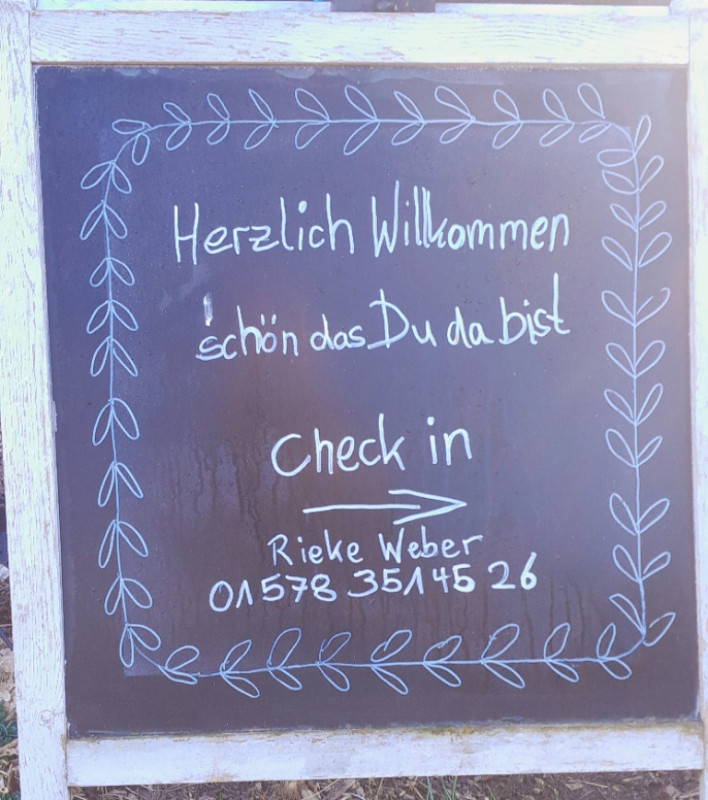 Herzlich Willkommen
schön das Du da bist
Check in
Rieke Weber
01578 35145 26